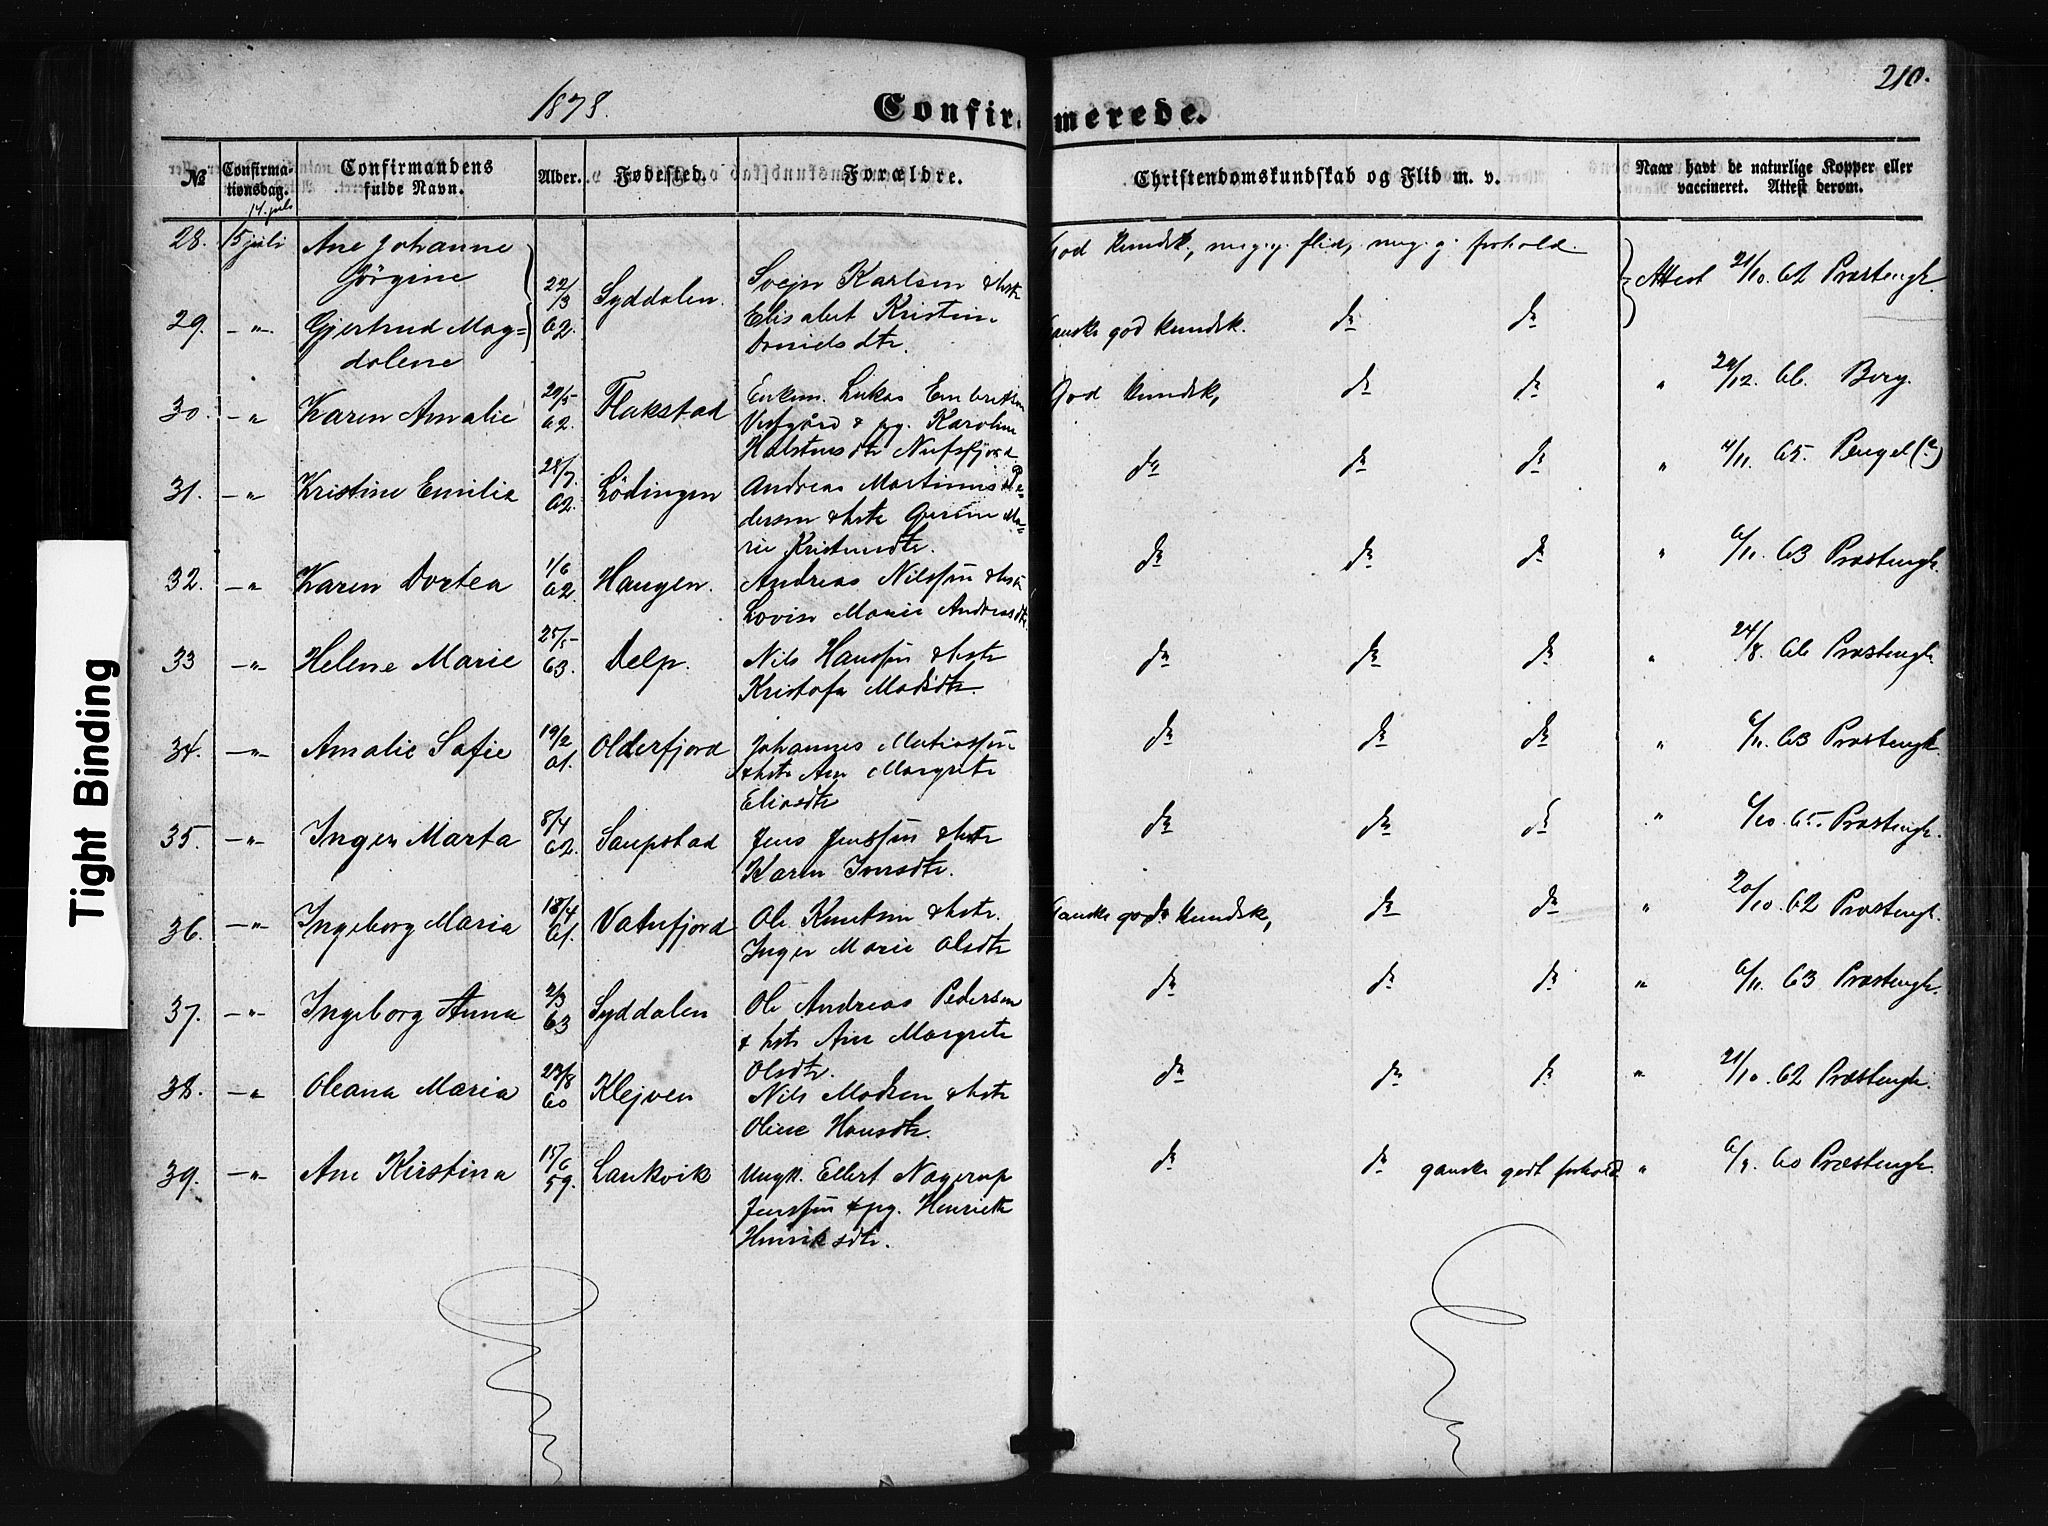 210.
1878.
Confirmerede.
№
Confirmationsdag.
Confirmandens fulde Navn.
Alder.
Fødested.
Forældre.
Christendomskundskab og Flid m. v.
Naar havt de naturlige Kopper eller vaccineret. Attest derom.
14. juli
28. 15 juli Ane Johanne Jörgine 22/3 62. Syddalen. Svejn Karlsen & hstr Elisabet Kristin Danielsdtr. God kundsk., meg. g. flid, meg. g. forhold. Attest 21/10. 62 Præstengh.
29. —"— Gjertrud Magdalene Ganske god kundsk. do do
30. —"— Karen Amalie 20/5 62. Flakstad Enkem. Lukas Embretsen Vestgård & pg. Karoline Halstensdtr Nufsfjord God kundsk, do do " 20/12. 66. Borg.
31. —"— Kristine Emilie 28/7. 62. Lödingen Andreas Martinus Pedersen & hstr Gurine Marie Kristendtr. do do do " 4/11. 65. Pengel (?)
32. —"— Karen Dortea 1/6 62. Haugen. Andreas Nilssen & hstr Lovise Marie Andreasdtr. do do do " 6/11. 63 Præstengh.
33 —"— Helene Marie 25/5 63. Delp. Nils Hanssen & hstr Kristofa Madsdtr. do do do " 24/8. 66 Præstengh.
34. —"— Amalie Sofie 19/2 61. Olderfjord Johannes Matiassen & hstr Ane Margrete Eliasdtr do do do " 6/11. 63 Præstengh.
35. —"— Inger Marta 8/4 62. Saupstad Jens Jenssen & hstr Karen Iversdtr. do do do " 6/10. 65. Præstengh.
36. —"— Ingeborg Maria 18/4 61. Vatnfjord Ole Knutsen & hstr. Inger Marie Olsdtr Ganske god kundsk, do do " 20/10. 62 Præstengh.
37. —"— Ingeborg Anna 2/3 63 Syddalen Ole Andreas Pedersen & hstr Ane Margrete Olsdtr. do do do " 6/11. 63 Præstengh.
38. —"— Oleana Maria 23/8 60 Klejven Nils Madsen & hstr Oline Hansdtr. do do do " 21/10. 62 Præstengh.
39. —"— Ane Kirstina 15/6 59. Laukvik Ungk. Ellert Nagerup Jenssen & pg. Henriette Henriksdtr. do do ganske godt forhold " 6/9. 60 Præstengh.
Tight Binding